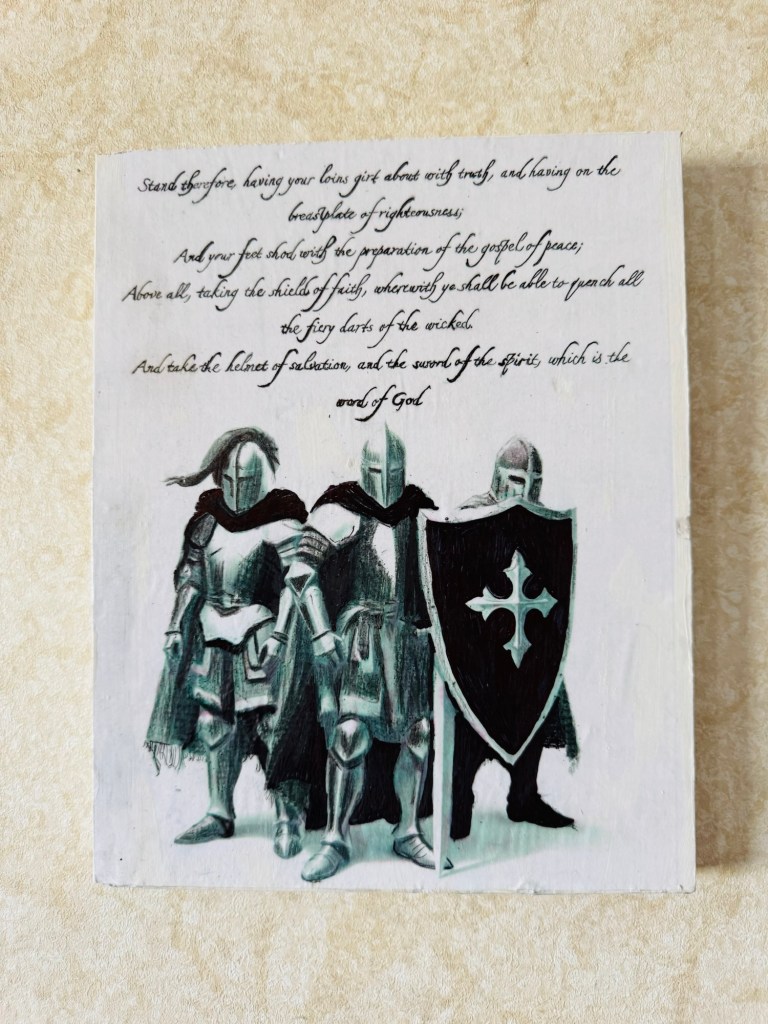 Stand therefore, having your loins girt about with truth, and having on the
breastplate of righteousness;
And your feet shod with the preparation of the gospel of peace;
Above all, taking the shield of faith, wherewith ye shall be able to quench all
the fiery darts of the wicked.
And take the helmet of salvation, and the sword of the spirit, which is the
word of God